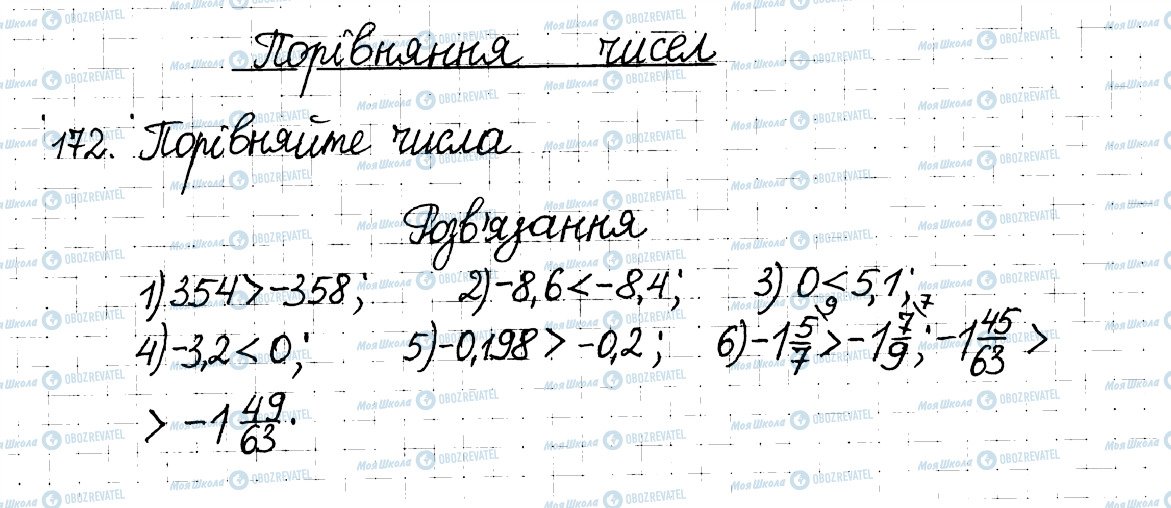 Порівняння чисел
172. Порівняйте числа
Розв'язання
1) 354 > -358; 2) -8,6 < -8,4; 3) 0 < 5,1;
4) -3,2 < 0; 5) -0,198 > -0,2; 6) -1 5/7 \9 > -1 7/9 \7; -1 45/63 >
> -1 49/63.